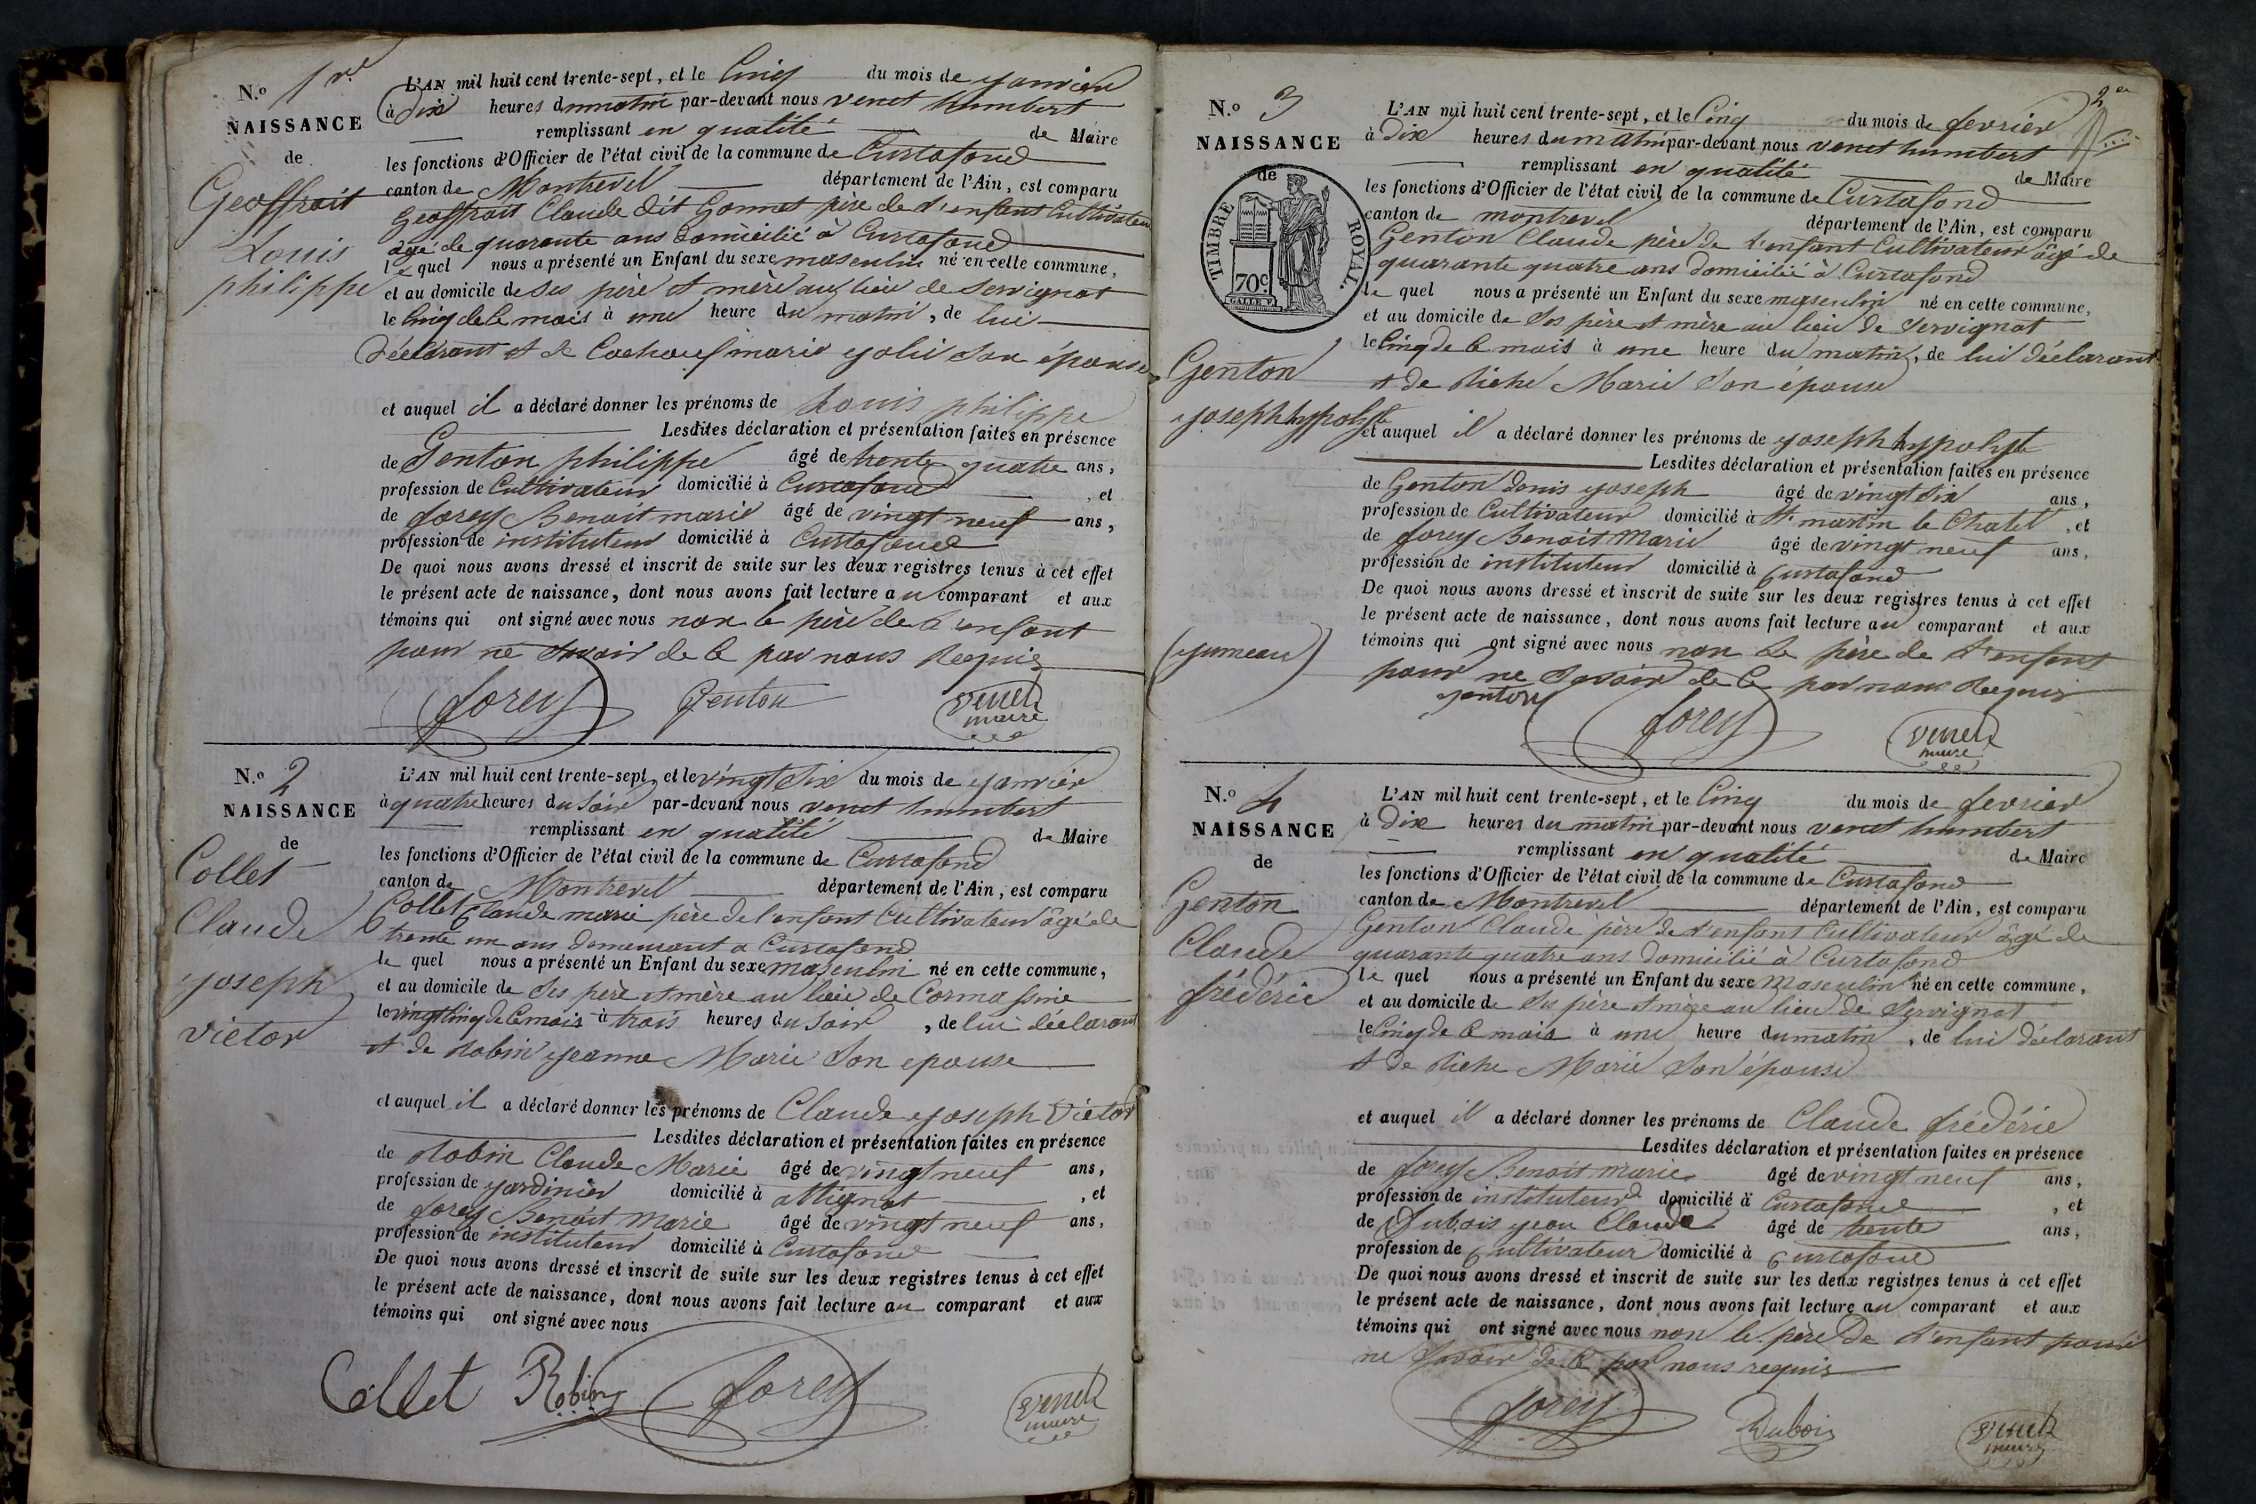 N.o 1re
NAISSANCE
de
Geoffrait
Louis
philippe
L'AN mil huit cent trente-sept, et le Cinq du mois de janvier
à Dix heures du matin par-devant nous venet humbert
remplissant en qualité de Maire
les fonctions d'Officier de l'état civil de la commune de Curtafond
canton de Montrevel département de l'Ain, est comparu
Geoffrait Claude dit Gonnet père de l'enfant Cultivateur
âgé de quarante ans Domicilié à Curtafond
le quel nous a présenté un Enfant du sexe masculin né en cette commune,
et au domicile de Ses père et mère au lieu de Servignat
le Cinq de Ce mois à une heure du matin, de lui
Déclarant et de marie jolie Son épouse
et auquel il a déclaré donner les prénoms de Louis philippe
Lesdites déclaration et présentation faites en présence
de Genton philippe âgé de trente quatre ans,
profession de Cultivateur domicilié à Curtafond, et
de Forey Benoit marie âgé de vingt neuf ans,
profession de instituteur domicilié à Curtafond
De quoi nous avons dressé et inscrit de suite sur les deux registres tenus à cet effet
le présent acte de naissance, dont nous avons fait lecture au comparant et aux
témoins qui ont signé avec nous non le père de l'enfant
pour ne Savoir de Ce par nous Requis
Forey Genton Venet
maire
N.o 2
NAISSANCE
de
Collet
Claude
joseph
victor
L'AN mil huit cent trente-sept, et le vingt Six du mois de janvier
à quatre heures du Soir par-devant nous venet humbert
remplissant en qualité de Maire
les fonctions d'Officier de l'état civil de la commune de Curtafond
canton de Montrevel département de l'Ain, est comparu
Collet Claude marie père de l'enfant Cultivateur âgé de
trente un ans demeurant a Curtafond
le quel nous a présenté un Enfant du sexe masculin né en cette commune,
et au domicile de Ses père et mère au lieu de
le vingt Cinq de Ce mois à trois heures du Soir, de lui déclarant
et de Robin jeanne Marie Son epouse
et auquel il a déclaré donner les prénoms de Claude joseph Victor
Lesdites déclaration et présentation faites en présence
de Robin Claude Marie âgé de vingt neuf ans,
profession de jardinier domicilié à attignat, et
de Forey Benoit Marie âgé de vingt neuf ans,
profession de instituteur domicilié à Curtafond
De quoi nous avons dressé et inscrit de suite sur les deux registres tenus à cet effet
le présent acte de naissance, dont nous avons fait lecture au comparant et aux
témoins qui ont signé avec nous
Collet Robin Forey Venet
maire
2
N.o 3
NAISSANCE
de
TIMBRE ROYAL.
70c
Genton
joseph hypolyte
(jumeau)
L'AN mil huit cent trente-sept, et le Cinq du mois de fevrier
à Dix heures du matin par-devant nous venet humbert
remplissant en qualité de Maire
les fonctions d'Officier de l'état civil de la commune de Curtafond
canton de montrevel département de l'Ain, est comparu
Genton Claude père de l'enfant Cultivateur âgé de
quarante quatre ans Domicilié à Curtafond
le quel nous a présenté un Enfant du sexe masculin né en cette commune,
et au domicile de Ses père et mère au lieu de Servignat
le Cinq de Ce mois à une heure du matin, de lui déclarant
et de Riche Marie Son épouse
et auquel il a déclaré donner les prénoms de joseph hypolyte
Lesdites déclaration et présentation faites en présence
de Genton Denis joseph âgé de vingt Six ans,
profession de Cultivateur domicilié à St. martin le Chatel, et
de Forey Benoit Marie âgé de vingt neuf ans,
profession de instituteur domicilié à Curtafond
De quoi nous avons dressé et inscrit de suite sur les deux registres tenus à cet effet
le présent acte de naissance, dont nous avons fait lecture au comparant et aux
témoins qui ont signé avec nous non le père de l'enfant
pour ne Savoir de Ce par nous Requis
Genton Forey Venet
maire
N.o 4
NAISSANCE
de
Genton
Claude
frédéric
L'AN mil huit cent trente-sept, et le Cinq du mois de fevrier
à Dix heures du matin par-devant nous venet humbert
remplissant en qualité de Maire
les fonctions d'Officier de l'état civil de la commune de Curtafond
canton de Montrevel département de l'Ain, est comparu
Genton Claude père de l'enfant Cultivateur âgé de
quarante quatre ans Domicilié à Curtafond
le quel nous a présenté un Enfant du sexe Masculin né en cette commune,
et au domicile de Ses père et mère au lieu de Servignat
le Cinq de Ce mois à une heure du matin, de lui déclarant
et de Riche Marie Son épouse
et auquel il a déclaré donner les prénoms de Claude frédéric
Lesdites déclaration et présentation faites en présence
de Forey Benoit marie âgé de vingt neuf ans,
profession de instituteur domicilié à Curtafond, et
de Dubois jean Claude âgé de trente ans,
profession de Cultivateur domicilié à Curtafond
De quoi nous avons dressé et inscrit de suite sur les deux registres tenus à cet effet
le présent acte de naissance, dont nous avons fait lecture au comparant et aux
témoins qui ont signé avec nous non le père De l'enfant pour
ne Savoir de Ce par nous requis
Forey Dubois Venet
maire